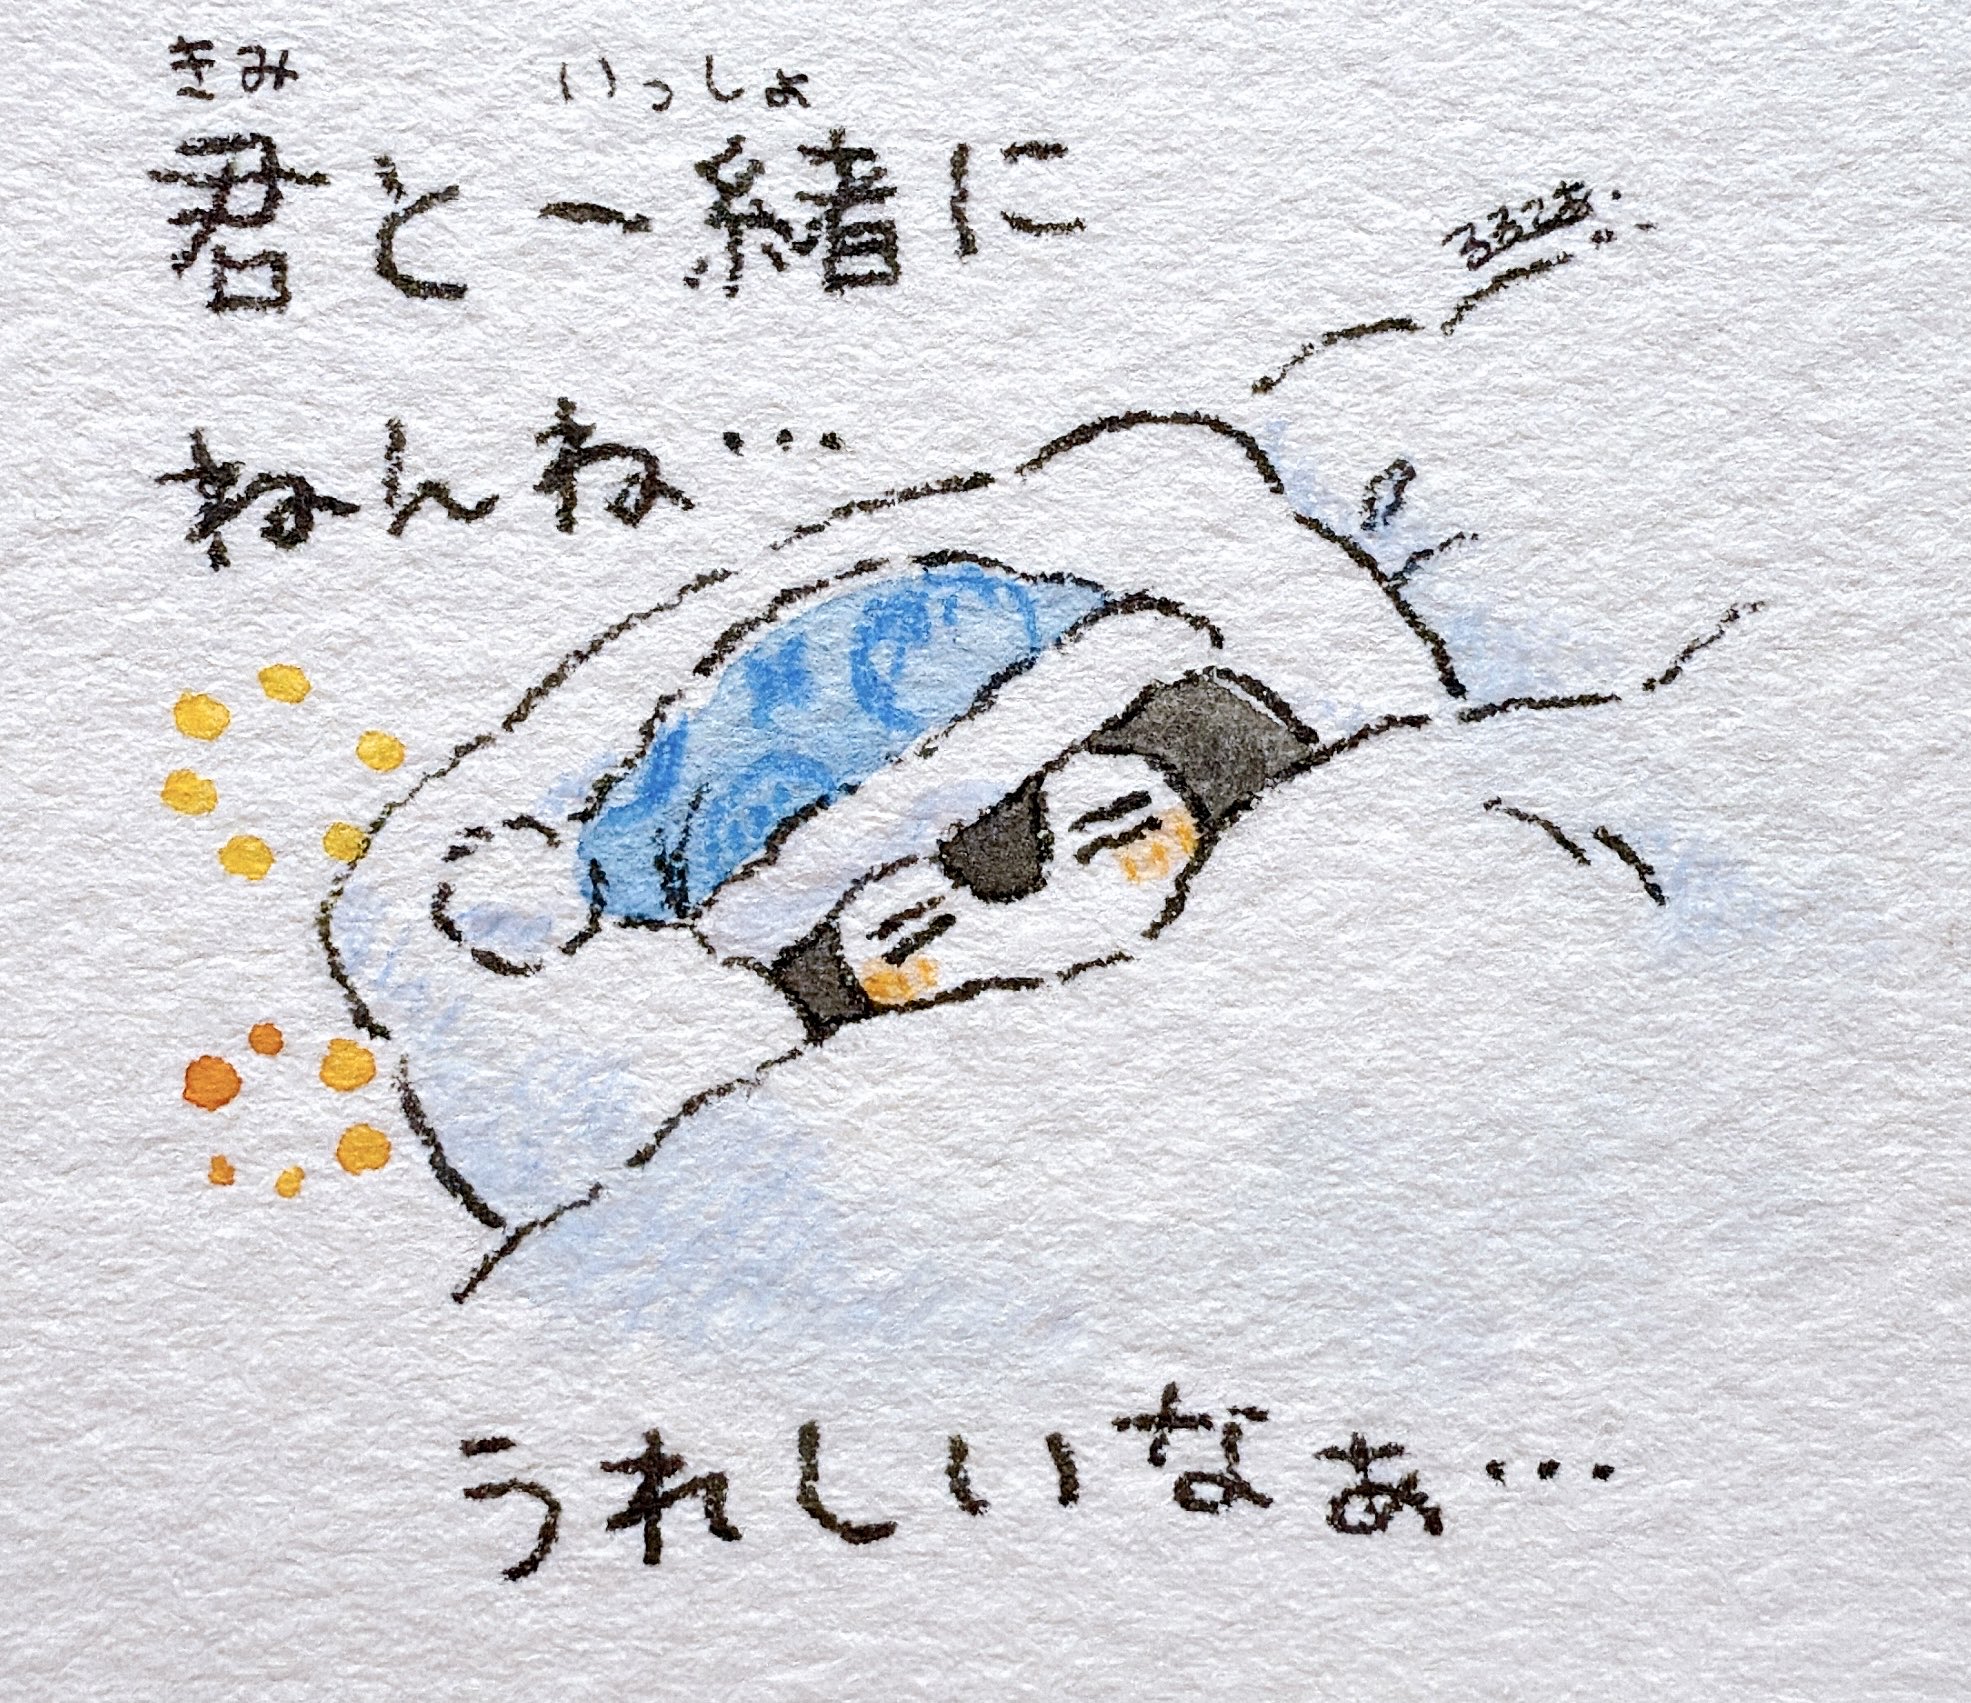 きみ いっしょ
君と一緒に
ねんね…
うれしいなぁ…